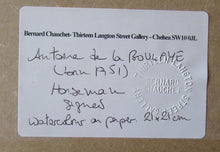 Bernard Chauchet- Thirteen Langton Street Gallery - Chelsea SW10 0JL
Antoine de la BOULAYE
(born 1951)
Horseman
signed
Watercolour on paper 21x21cm
BERNARD
CHAUCHET